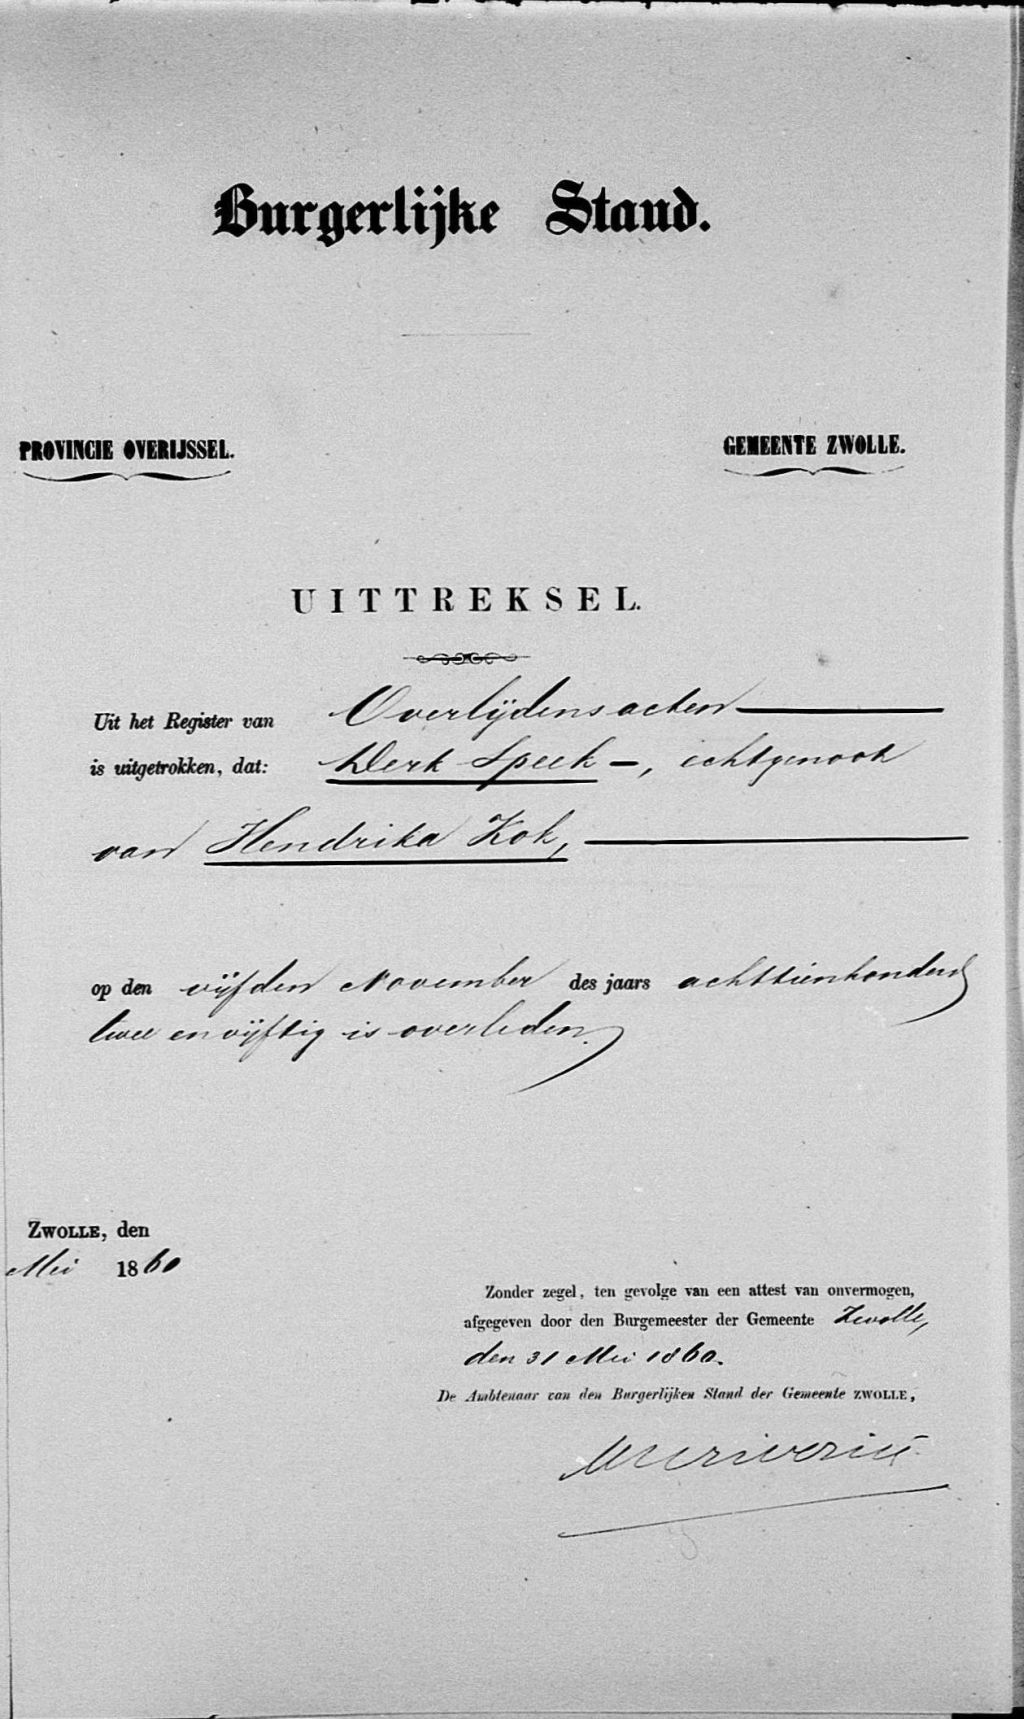 Burgerlijke Stand.
PROVINCIE OVERIJSSEL. GEMEENTE ZWOLLE.
UITTREKSEL.
Uit het Register van Overlijdens acten
is uitgetrokken, dat: Derk Speek –, echtgenoot
van Hendrika Kok,
op den vijfden November des jaars achttienhonderd
twee en vijftig is overleden.
ZWOLLE, den
Mei 1860
Zonder zegel, ten gevolge van een attest van onvermogen,
afgegeven door den Burgemeester der Gemeente Zwolle,
den 31 Mei 1860.
De Ambtenaar van den Burgerlijken Stand der Gemeente ZWOLLE,